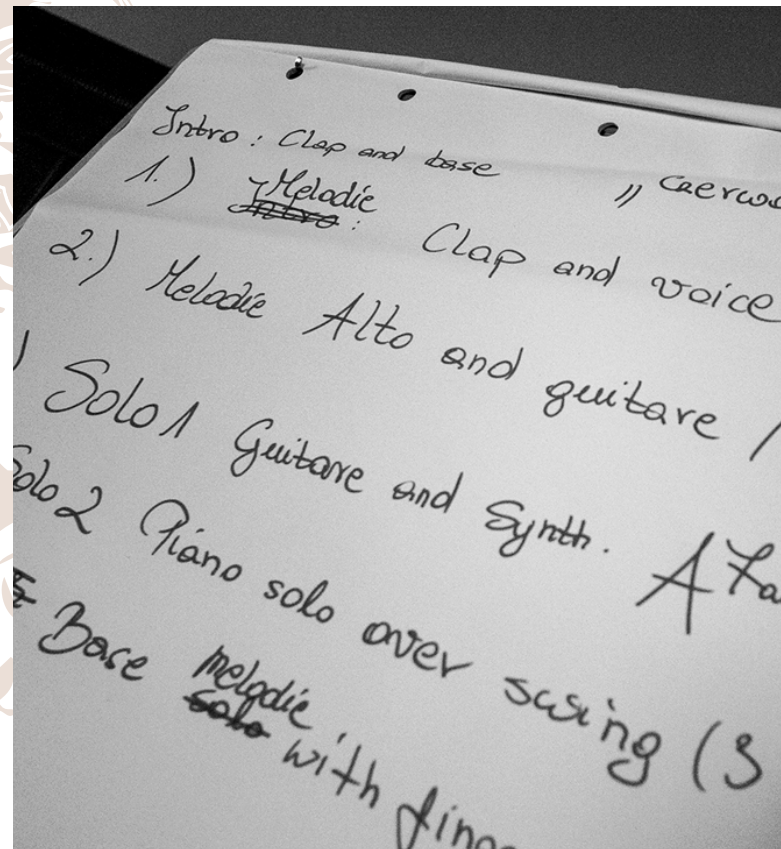 Intro : Clap and base
1.) Melodie : Clap and voice
2.) Melodie Alto and guitare /
) Solo 1 Guitare and Synth.
Solo 2 Piano solo over swing (3
Base melodie with